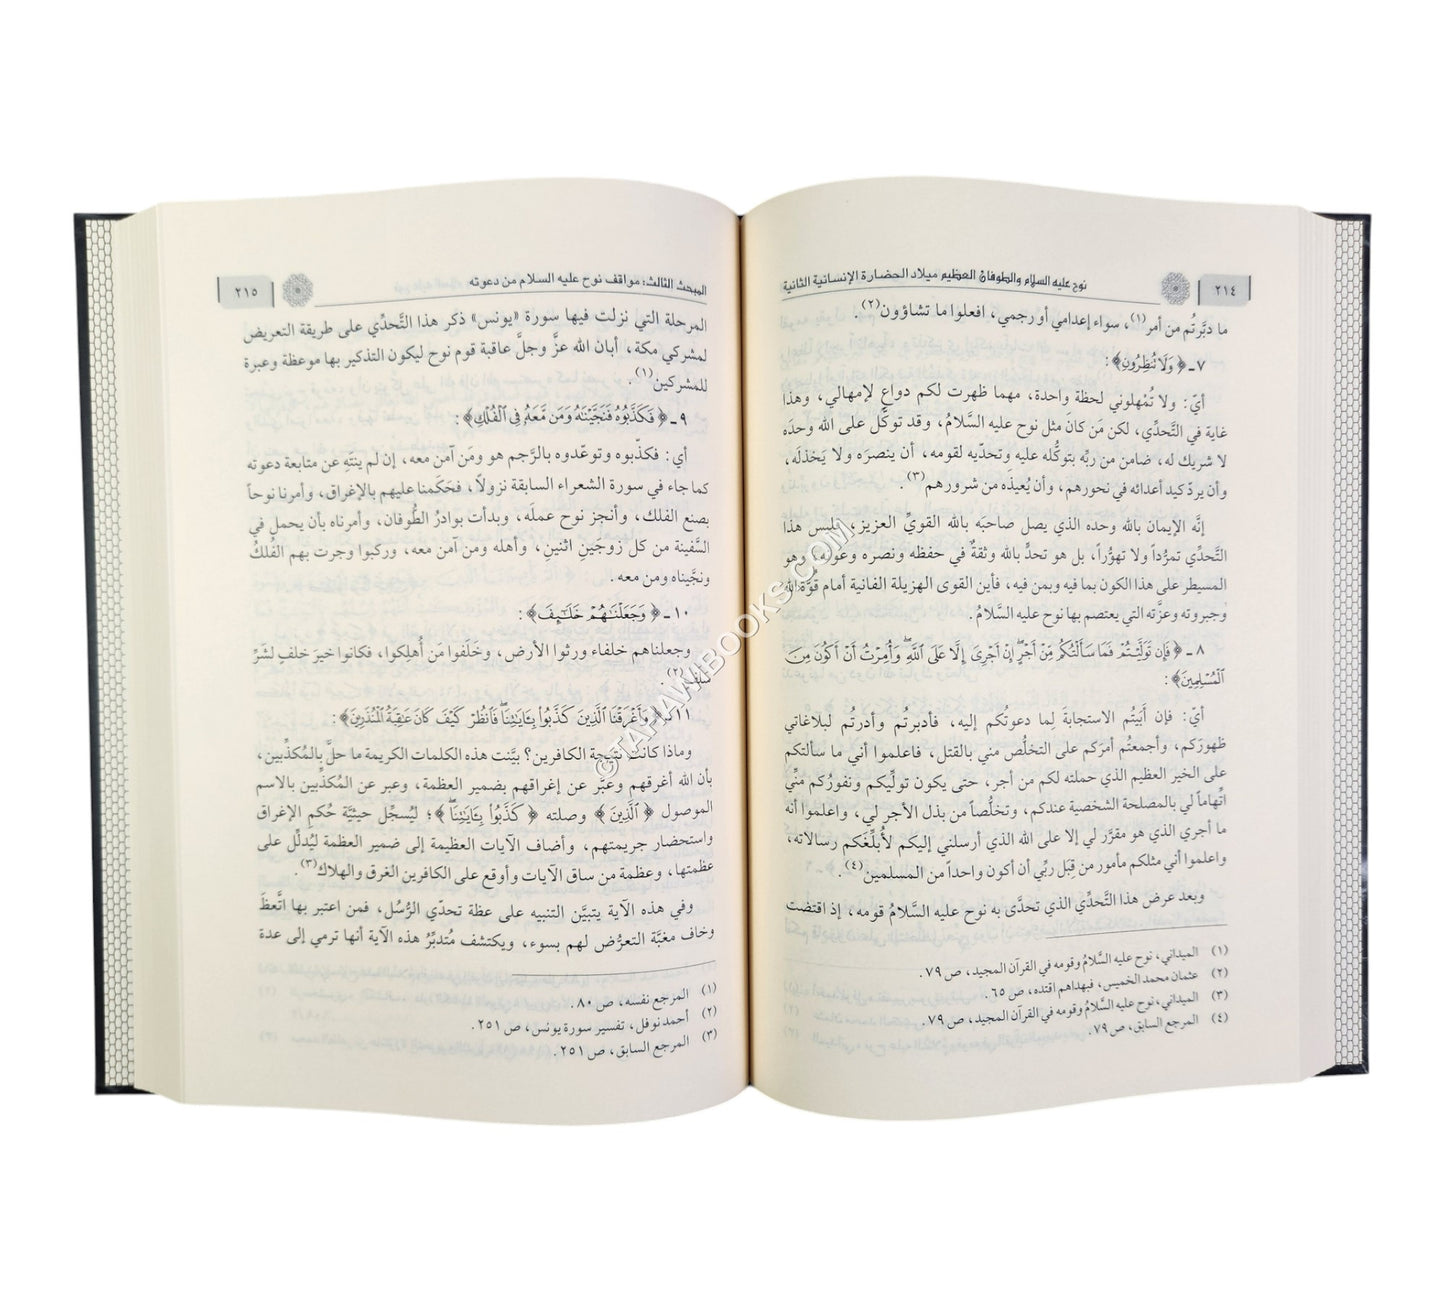 نوح عليه السلام والطوفان العظيم ميلاد الحضارة الإنسانية الثانية
٢١٤
ما دبَّرتُم من أمر(١)، سواء إعدامي أو رجمي، افعلوا ما تشاؤون(٢).
٧ـ ﴿وَلَا تُنظِرُونِ﴾:
أيّ: ولا تُمْهلوني لحظة واحدة، مهما ظهرت لكم دواعٍ لإمهالي، وهذا
غاية في التَّحدِّي، لكن مَن كانَ مثل نوح عليه السَّلامُ، وقد توكَّل على الله وحدَه
لا شريك له، ضامن من ربِّه بتوكُّله عليه وتحدّيه لقومه، أن ينصرَه ولا يَخذلَه،
وأن يردّ كيد أعدائه في نحورهم، وأن يُعيذَه من شرورهم(٣).
إنَّه الإيمان بالله وحده الذي يصل صاحبَه بالله القويِّ العزيز، فليس هذا
التَّحدِّي تمرُّداً ولا تهوُّراً، بل هو تحدٍّ بالله وثقةٌ في حفظه ونصره وعونه، وهو
المسيطر على هذا الكون بما فيه وبمن فيه، فأين القوى الهزيلة الفانية أمام قوَّة الله
وجبروته وعزَّته التي يعتصم بها نوح عليه السَّلامُ.
٨ـ ﴿فَإِن تَوَلَّيْتُمْ فَمَا سَأَلْتُكُم مِّنْ أَجْرٍ إِنْ أَجْرِيَ إِلَّا عَلَى اللَّهِ وَأُمِرْتُ أَنْ أَكُونَ مِنَ
الْمُسْلِمِينَ﴾:
أيّ: فإن أَبَيتُم الاستجابةَ لِما دعوتُكم إليه، فأدبرتُم وأدرتُم لبلاغاتي
ظهورَكم، وأجمعتُم أمرَكم على التخلُّص مني بالقتل، فاعلموا أني ما سألتكم
على الخير العظيم الذي حملته لكم من أجر، حتى يكون تولِّيكم ونفورُكم منِّي
اتِّهاماً لي بالمصلحة الشخصية عندكم، وتخلُّصاً من بذل الأجر لي، واعلموا أنه
ما أجري الذي هو مقرَّر لي إلا على الله الذي أرسلني إليكم لأُبلِّغَكم رسالاته،
واعلموا أني مثلكم مأمور من قِبَل ربِّي أن أكون واحداً من المسلمين(٤).
وبعد عرض هذا التَّحدِّي الذي تحدَّى به نوح عليه السَّلامُ قومه، إذ اقتضت
(١) الميداني، نوح عليه السَّلامُ وقومه في القرآن المجيد، ص ٧٩.
(٢) عثمان محمد الخميس، فبهداهم اقتده، ص ٦٥.
(٣) الميداني، نوح عليه السَّلامُ وقومه في القرآن المجيد، ص ٧٩.
(٤) المرجع السابق، ص ٧٩.
المبحث الثالث: مواقف نوح عليه السلام من دعوته
٢١٥
المرحلة التي نزلت فيها سورة «يونس» ذكر هذا التَّحدِّي على طريقة التعريض
لمشركي مكة، أبان الله عزَّ وجلَّ عاقبة قوم نوح ليكون التذكير بها موعظة وعبرة
للمشركين(١).
٩ـ ﴿فَكَذَّبُوهُ فَنَجَّيْنَاهُ وَمَن مَّعَهُ فِي الْفُلْكِ﴾:
أي: فكذّبوه وتوعّدوه بالرَّجم هو ومَن آمن معه، إن لم ينتَهِ عن متابعة دعوته
كما جاء في سورة الشعراء السابقة نزولًا، فحَكَمنا عليهم بالإغراق، وأمرنا نوحاً
بصنع الفلك، وأنجز نوح عملَه، وبدأت بوادرُ الطُّوفان، وأمرناه بأن يحمل في
السَّفينة من كل زوجَينِ اثنينِ، وأهله ومن آمن معه، وركبوا وجرت بهم الفُلكُ
ونجَّيناه ومن معه.
١٠ـ ﴿وَجَعَلْنَاهُمْ خَلَائِفَ﴾:
وجعلناهم خلفاء ورثوا الأرض، وخَلَفوا مَن أُهلِكوا، فكانوا خيرَ خلفٍ لشرِّ
سلف(٢).
١١ـ ﴿وَأَغْرَقْنَا الَّذِينَ كَذَّبُوا بِآيَاتِنَا فَانظُرْ كَيْفَ كَانَ عَاقِبَةُ الْمُنذَرِينَ﴾:
وماذا كانت نتيجة الكافرين؟ بيَّنت هذه الكلمات الكريمة ما حلَّ بالمُكذِّبين،
بأن الله أغرقهم وعبَّر عن إغراقهم بضمير العظمة، وعبر عن المُكذِّبين بالاسم
الموصول ﴿الَّذِينَ﴾ وصلته ﴿كَذَّبُوا بِآيَاتِنَا﴾؛ ليُسجِّل حيثيَّة حُكمِ الإغراق
واستحضار جريمتهم، وأضاف الآيات العظيمة إلى ضمير العظمة ليُدلِّل على
عظمتها، وعظمة من ساق الآيات وأوقع على الكافرين الغرق والهلاك(٣).
وفي هذه الآية يتبيَّن التنبيه على عظة تحدّي الرُّسُل، فمن اعتبر بها اتَّعظَ
وخاف مغبَّة التعرُّض لهم بسوء، ويكتشف مُتدبِّرُ هذه الآية أنها ترمي إلى عدة
(١) المرجع نفسه، ص ٨٠.
(٢) أحمد نوفل، تفسير سورة يونس، ص ٢٥١.
(٣) المرجع السابق، ص ٢٥١.
©TAHAWIBOOKS.COM